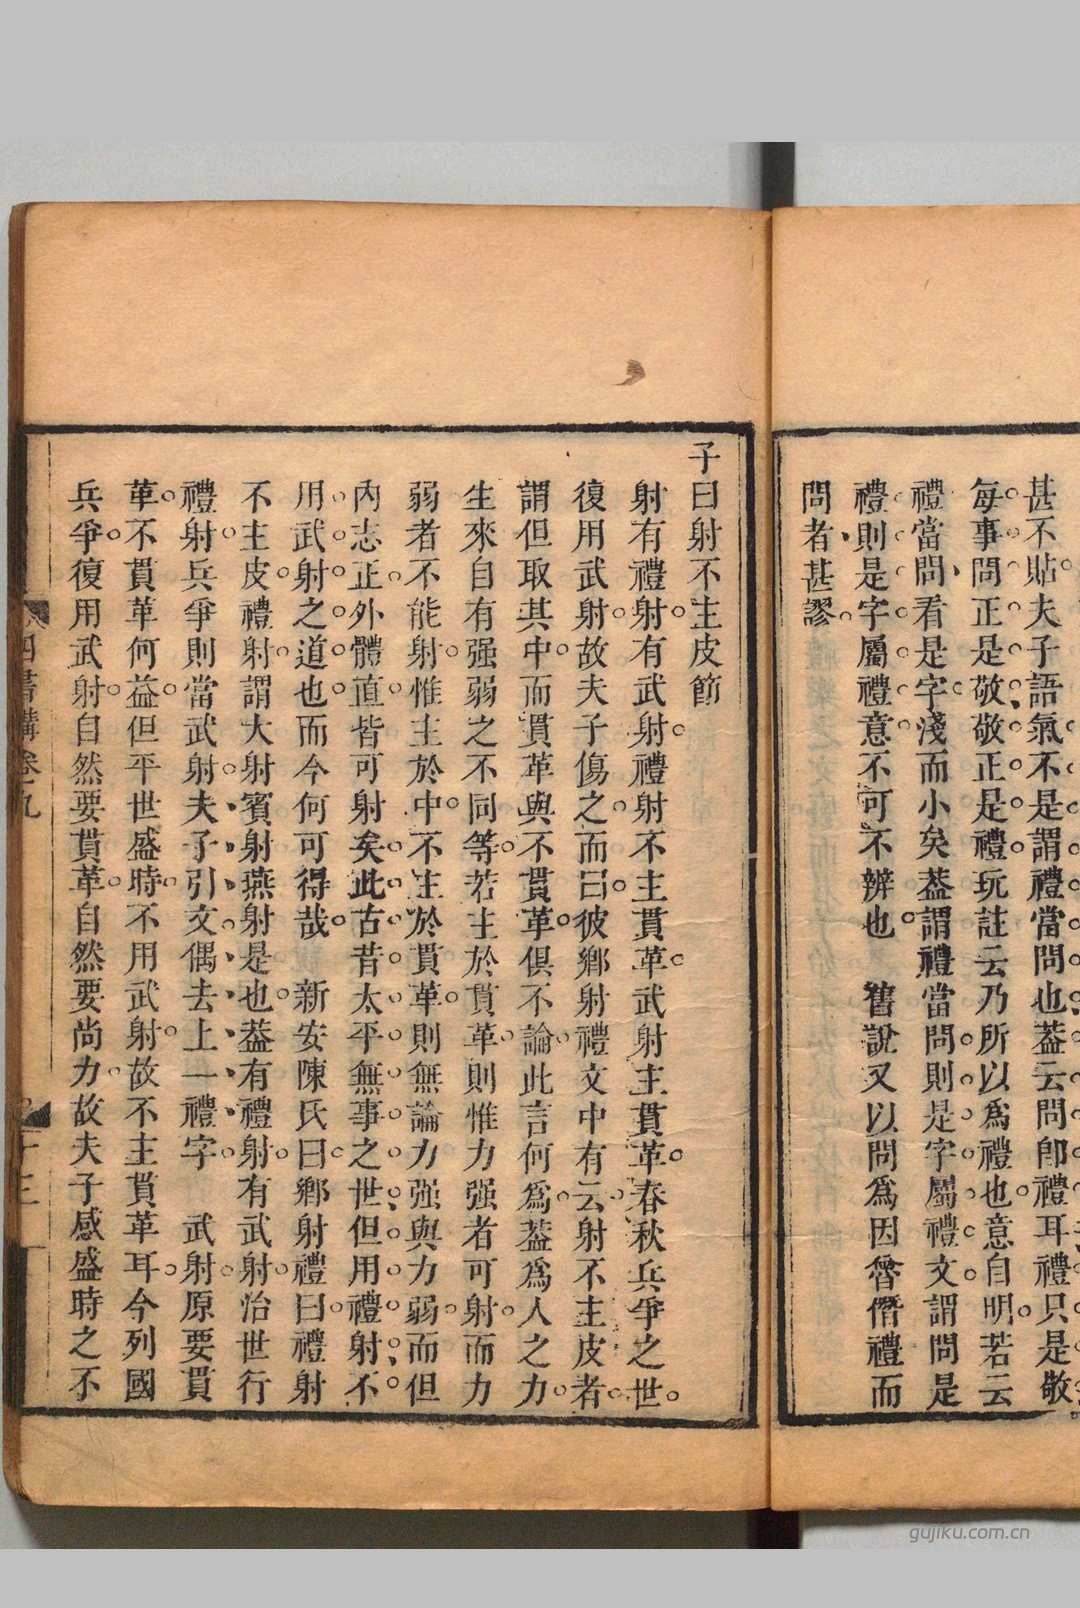 甚不貼夫子語氣不是謂禮當問也葢云問卽禮耳禮只是敬
每事問正是敬敬正是禮玩註云乃所以爲禮也意自明若云
禮當問看是字淺而小矣葢謂禮當問則是字屬禮文謂問是
禮則是字屬禮意不可不辨也 舊說又以問爲因魯僭禮而
問者甚謬
子曰射不主皮節
射有禮射有武射禮射不主貫革武射主貫革春秋兵爭之世
復用武射故夫子傷之而曰彼鄉射禮文中有云射不主皮者
謂但取其中而貫革與不貫革俱不論此言何爲葢爲人之力
生來自有强弱之不同等若主於貫革則惟力强者可射而力
弱者不能射惟主於中不主於貫革則無論力强與力弱而但
內志正外體直皆可射矣此古昔太平無事之世但用禮射不
用武射之道也而今何可得哉 新安陳氏曰鄉射禮曰禮射
不主皮禮射謂大射賓射燕射是也葢有禮射有武射治世行
禮射兵爭則當武射夫子引文偶去上一禮字 武射原要貫
革不貫革何益但平世盛時不用武射故不主貫革耳今列國
兵爭復用武射自然要貫革自然要尚力故夫子感盛時之不
四書講 卷十九 十三
gujiku.com.cn